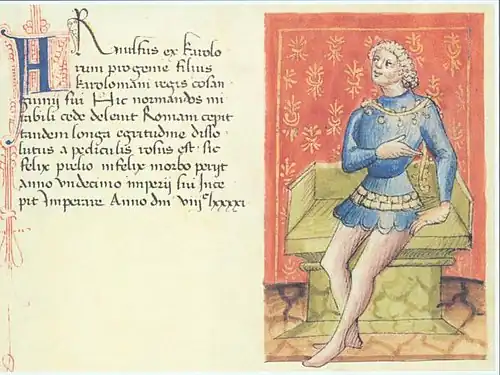 ARnulfus ex karolo
rum progenie filius
karolomani regis cosan
guinij sui Hic normandos mi
rabili cede deleuit Romam cepit
tandem longa egritudine disso
lutus a pediculis rosus est sic
felix prelio infelix morbo perijt
anno vndecimo imperij sui Ince
pit Imperare Anno dni viijc lxxxxi